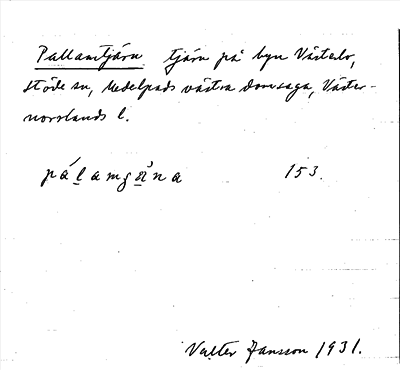 Pallamtjärn tjärn på byn Västerlo,
Stöde sn, Medelpads västra domsaga, Väster-
norrlands l.
pálamgǟna 153.
Valter Jansson 1931.